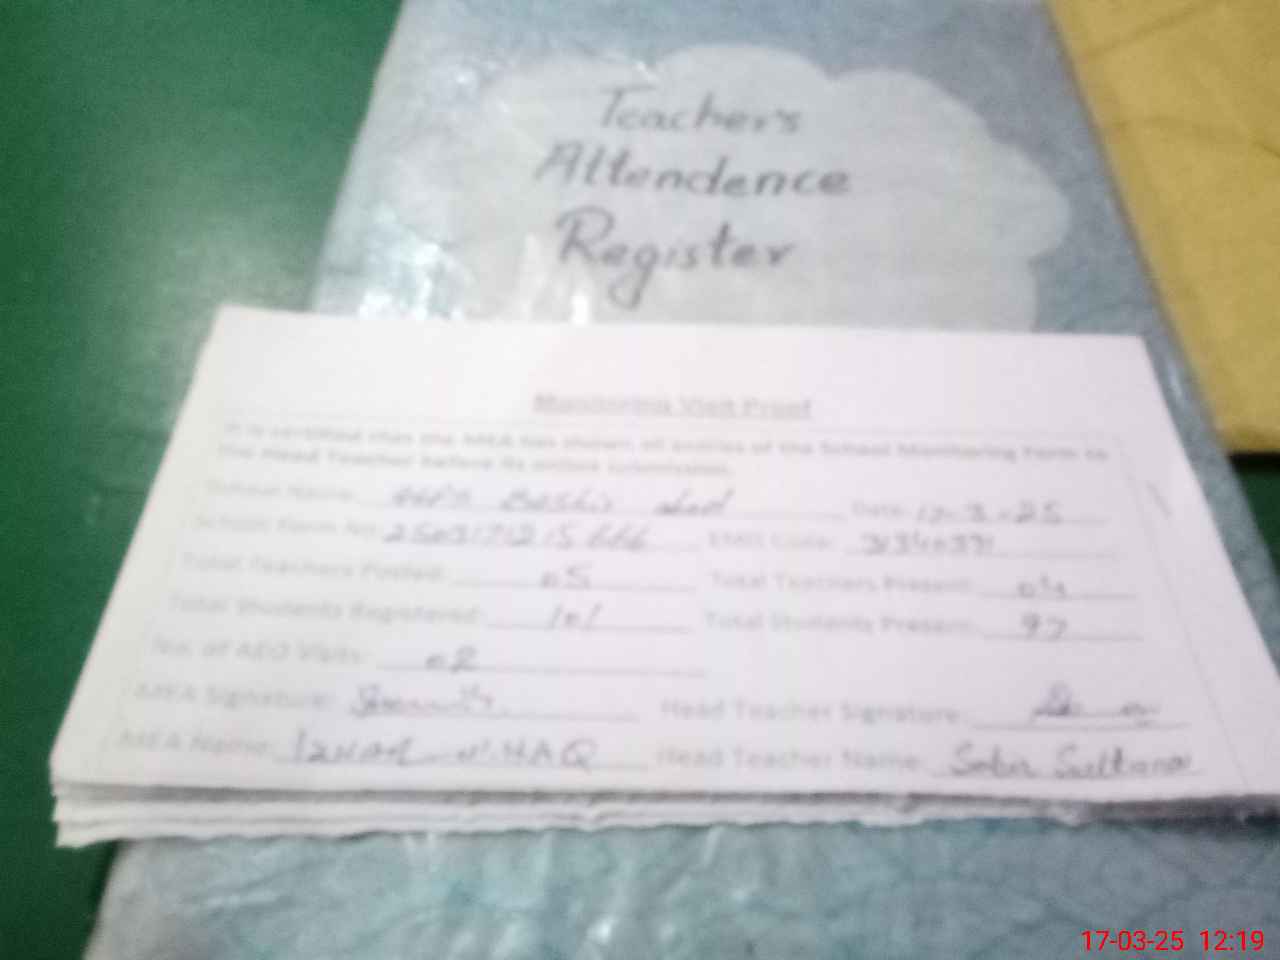 Teacher's
Attendence
Register
Monitoring Visit Proof
It is certified that the MEA has shown all entries of the School Monitoring Form to
the Head Teacher before its online submission.
School Name: Date: 17-3-25
School Form No: EMIS Code:
Total Teachers Posted: 05 Total Teachers Present: 04
Total Students Registered: 101 Total Students Present: 97
No. of AEO Visits: 02
MEA Signature: Head Teacher Signature:
MEA Name: HAQ Head Teacher Name: Sultana
17-03-25 12:19